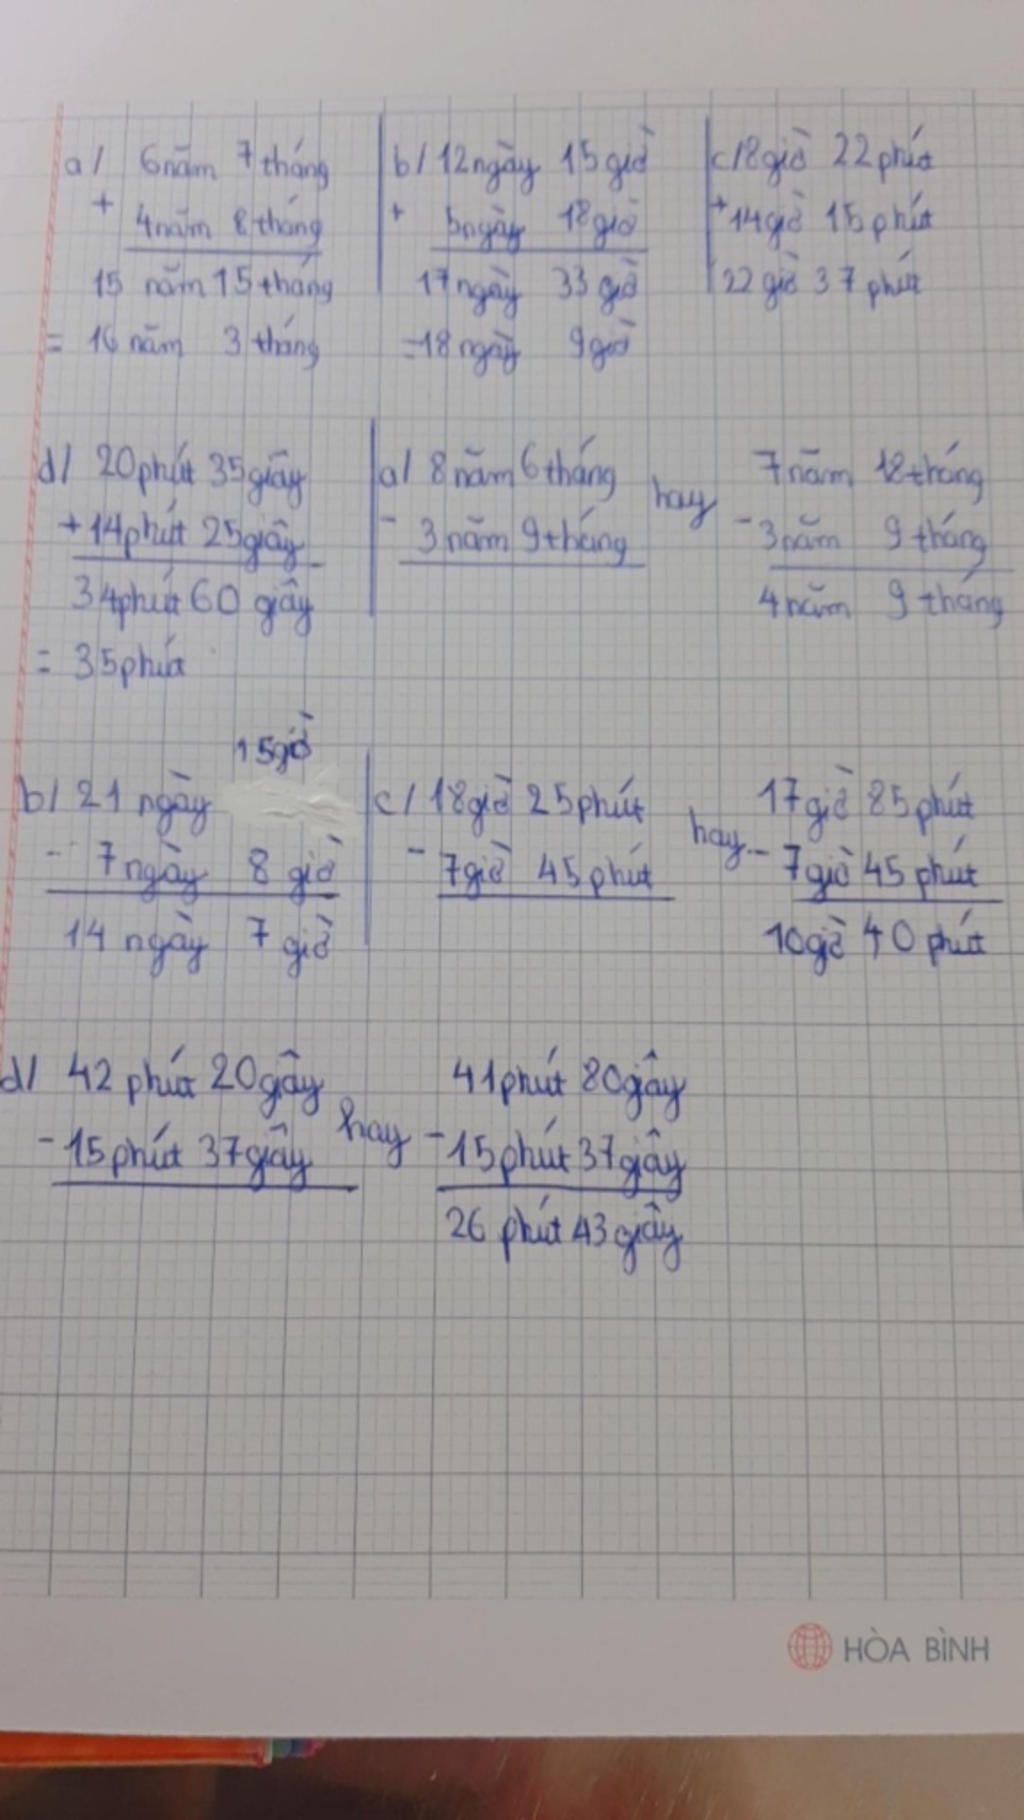 a/ 6năm 7tháng
+
4năm 8tháng
15 năm 15tháng
= 16 năm 3 tháng
b/ 12ngày 15giờ
+ 5ngày 18giờ
17ngày 33 giờ
=18ngày 9giờ
c/ 8giờ 22phút
+14giờ 15phút
22giờ 37phút
d/ 20phút 35giây
+14phút 25giây
34phút 60 giây
= 35phút
a/ 8năm 6tháng
- 3năm 9tháng
hay
7năm 18tháng
- 3năm 9tháng
4năm 9tháng
15giờ
b/ 21 ngày
- 7ngày 8 giờ
14 ngày 7 giờ
c/ 18giờ 25phút
- 7giờ 45phút
hay
17giờ 85phút
- 7giờ 45phút
10giờ 40 phút
d/ 42 phút 20gây
- 15phút 37giây
hay
41phút 80gây
- 15phút 37giây
26 phút 43giây
HÒA BÌNH